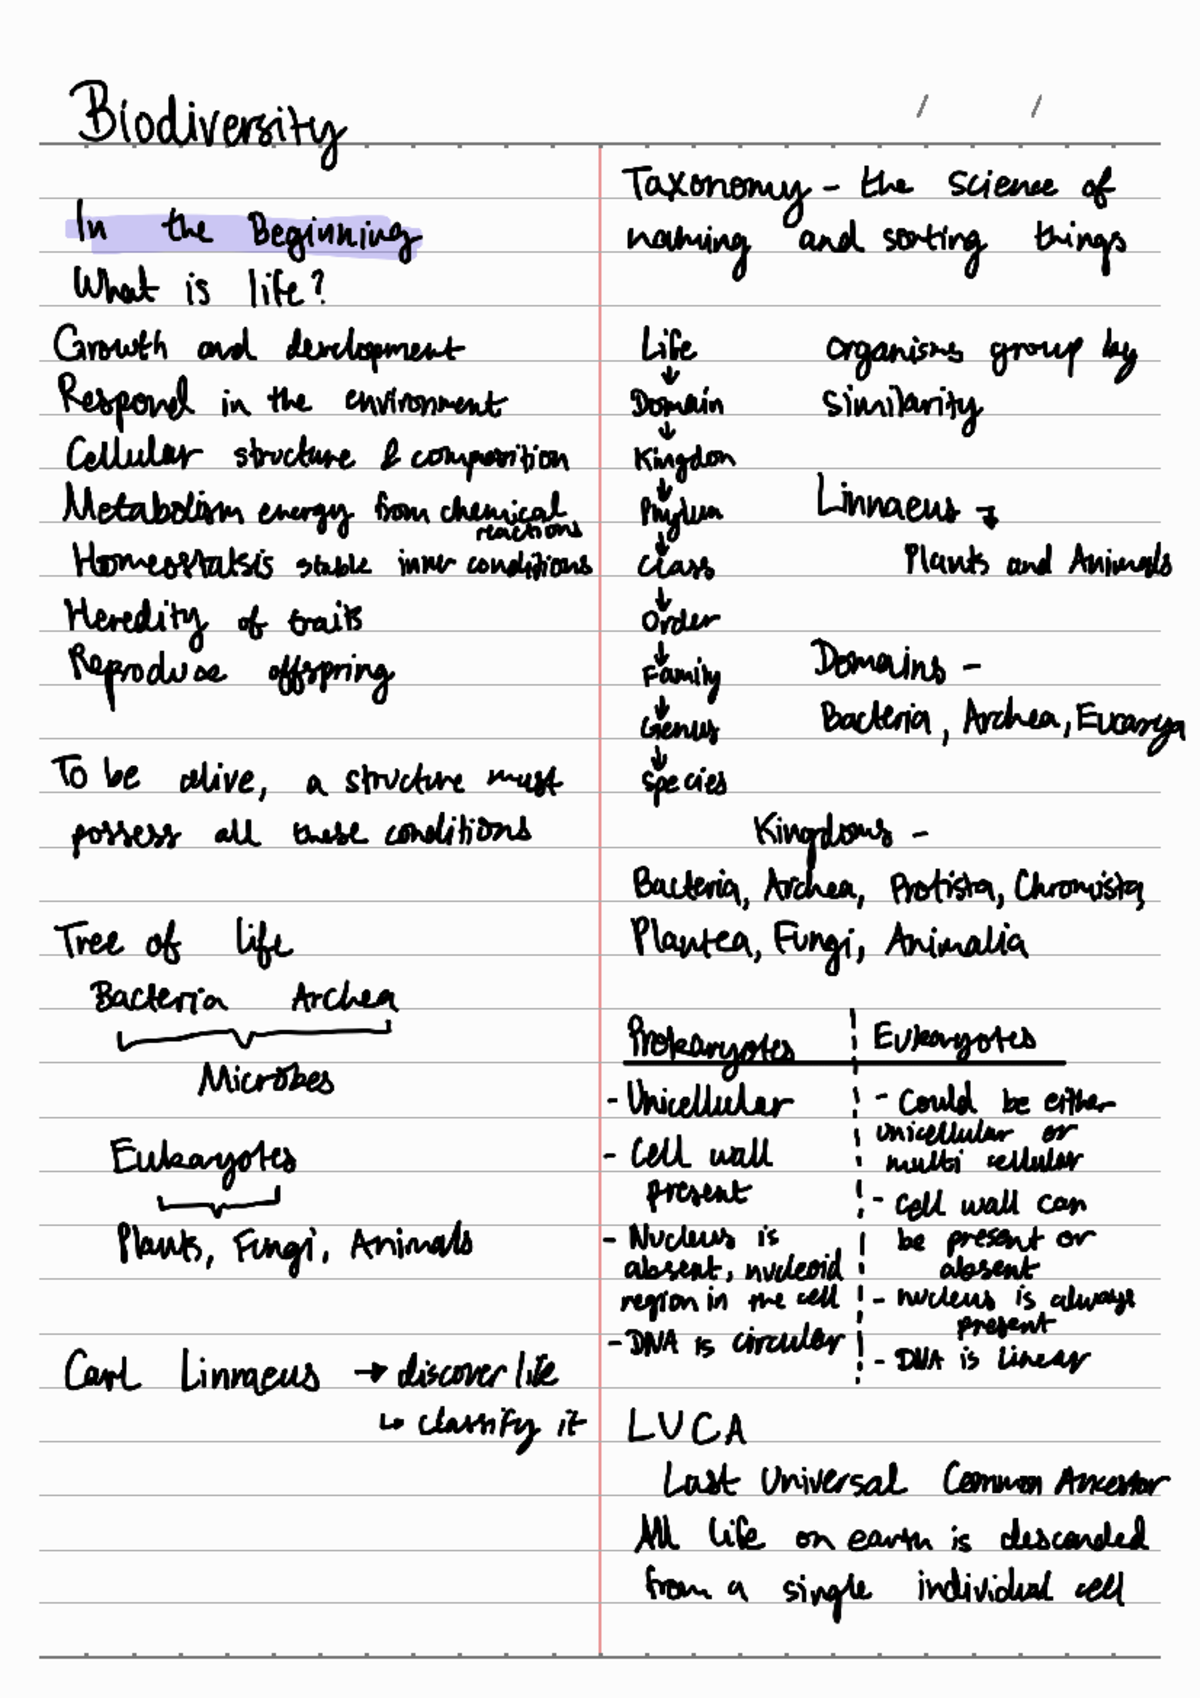 Biodiversity
/ /
In the Beginning
What is life?
Growth and development
Respond in the environment
Cellular structure & composition
Metabolism energy from chemical
reactions
Homeostatsis stable inner conditions
Heredity of traits
Reproduce offspring
To be alive, a structure must
possess all these conditions
Tree of life
Bacteria Archea
Microbes
Eukaryotes
Plants, Fungi, Animals
Carl Linnaeus → discover life
↳ classify it
Taxonomy - the science of
naming and sorting things
Life
↓
Domain
↓
Kingdon
↓
Phylum
↓
Class
↓
Order
↓
Family
↓
Genus
↓
Species
organisms group by
similarity
Linnaeus →
Plants and Animals
Domains -
Bacteria, Archea, Eucarya
Kingdoms -
Bacteria, Archea, Protista, Chromista,
Plantea, Fungi, Animalia
Prokaryotes
- Unicellular
- Cell wall
present
- Nucleus is
absent, nucleoid
region in the cell
- DNA is circular
Eukaryotes
- Could be either
unicellular or
multi cellular
- Cell wall can
be present or
absent
- nucleus is always
present
- DNA is linear
LUCA
Last Universal Common Ancestor
All life on earth is descended
from a single individual cell